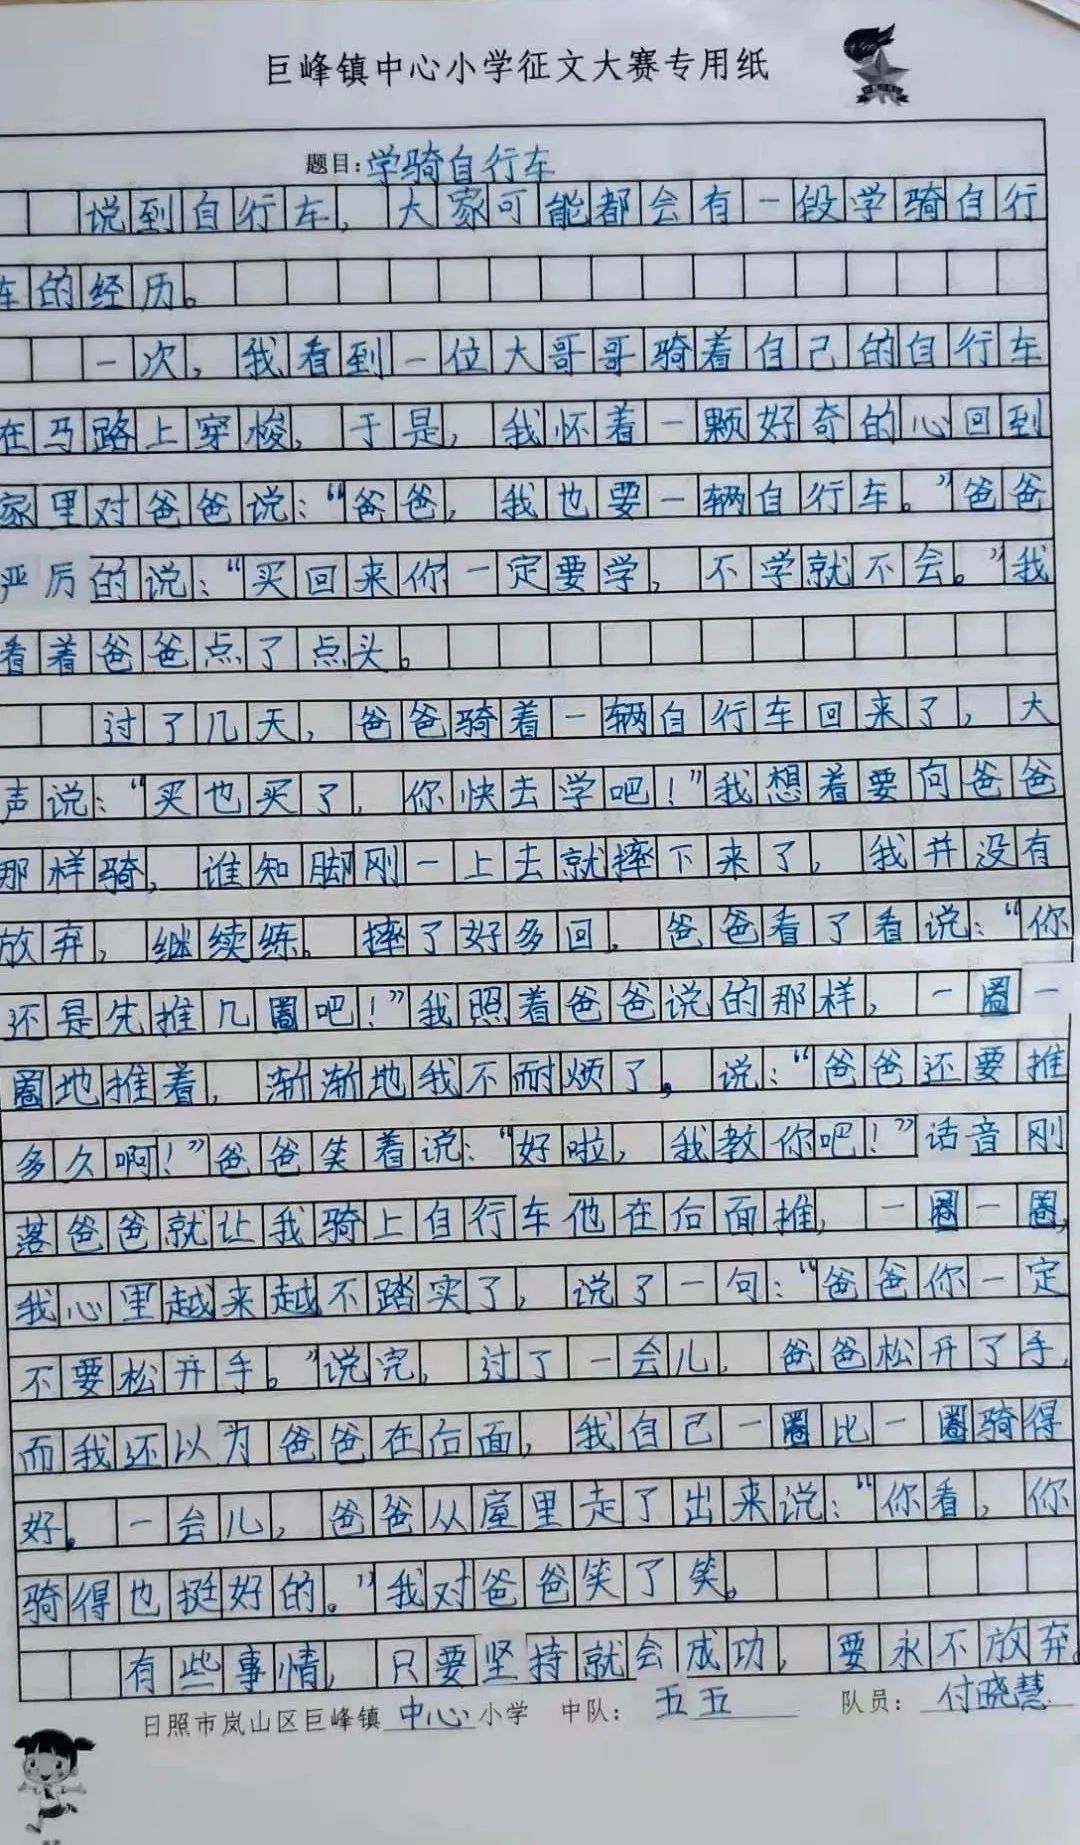 巨峰镇中心小学征文大赛专用纸
题目:学骑自行车
说到自行车，大家可能都会有一段学骑自行
车的经历。
一次，我看到一位大哥哥骑着自己的自行车
在马路上穿梭，于是，我怀着一颗好奇的心回到
家里对爸爸说：“爸爸，我也要一辆自行车。”爸爸
严厉的说：“买回来你一定要学，不学就不会。”我
看着爸爸点了点头。
过了几天，爸爸骑着一辆自行车回来了，大
声说：“买也买了，你快去学吧！”我想着要向爸爸
那样骑，谁知脚刚一上去就摔下来了，我并没有
放弃，继续练。摔了好多回，爸爸看了看说：“你
还是先推几圈吧！”我照着爸爸说的那样，一圈一
圈地推着，渐渐地我不耐烦了。说：“爸爸还要推
多久啊！”爸爸笑着说：“好啦，我教你吧！”话音刚
落爸爸就让我骑上自行车他在后面推，一圈一圈，
我心里越来越不踏实了，说了一句：“爸爸你一定
不要松开手。”说完，过了一会儿，爸爸松开了手，
而我还以为爸爸在后面，我自己一圈比一圈骑得
好。一会儿，爸爸从屋里走了出来说：“你看，你
骑得也挺好的。”我对爸爸笑了笑。
有些事情，只要坚持就会成功，要永不放弃。
日照市岚山区巨峰镇 中心 小学 中队： 五五 队员： 付晓慧